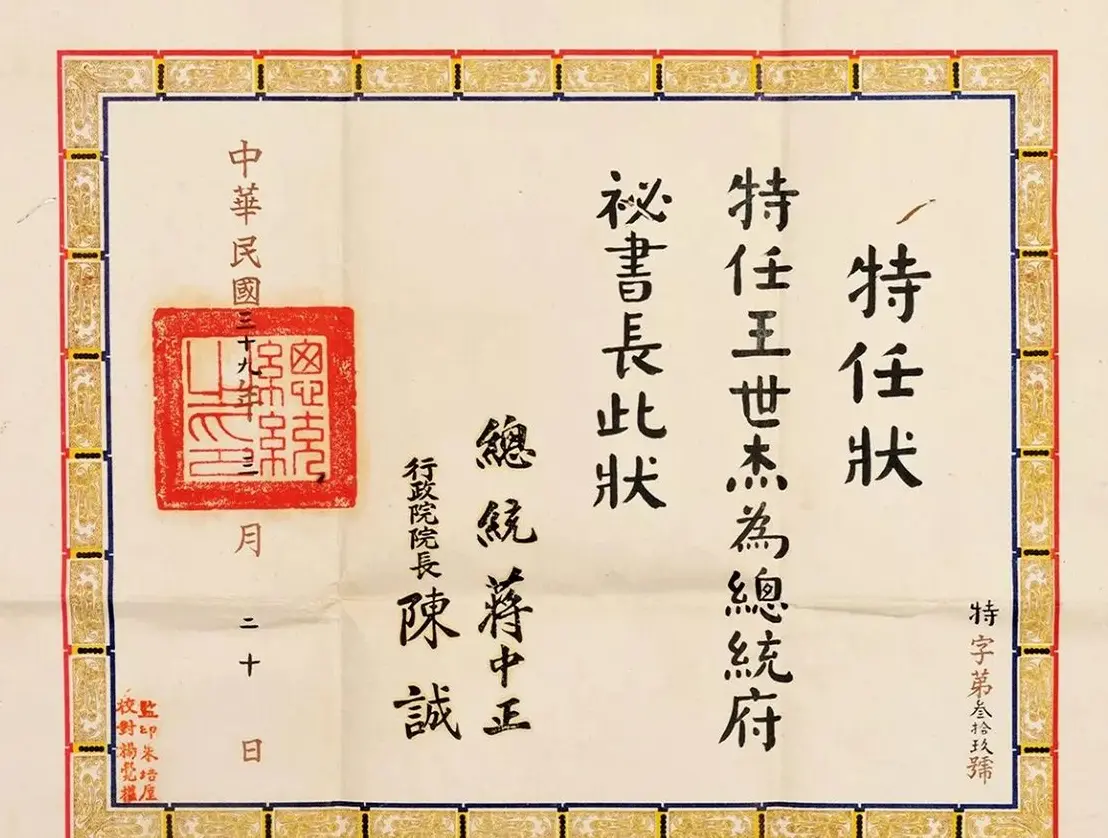 特任狀
特任王世杰為總統府
祕書長此狀
總統 蔣中正
行政院院長 陳誠
中華民國三十九年三月二十日
總統之印
特字第叁拾玖號
監印朱培垕
校對楊覺權